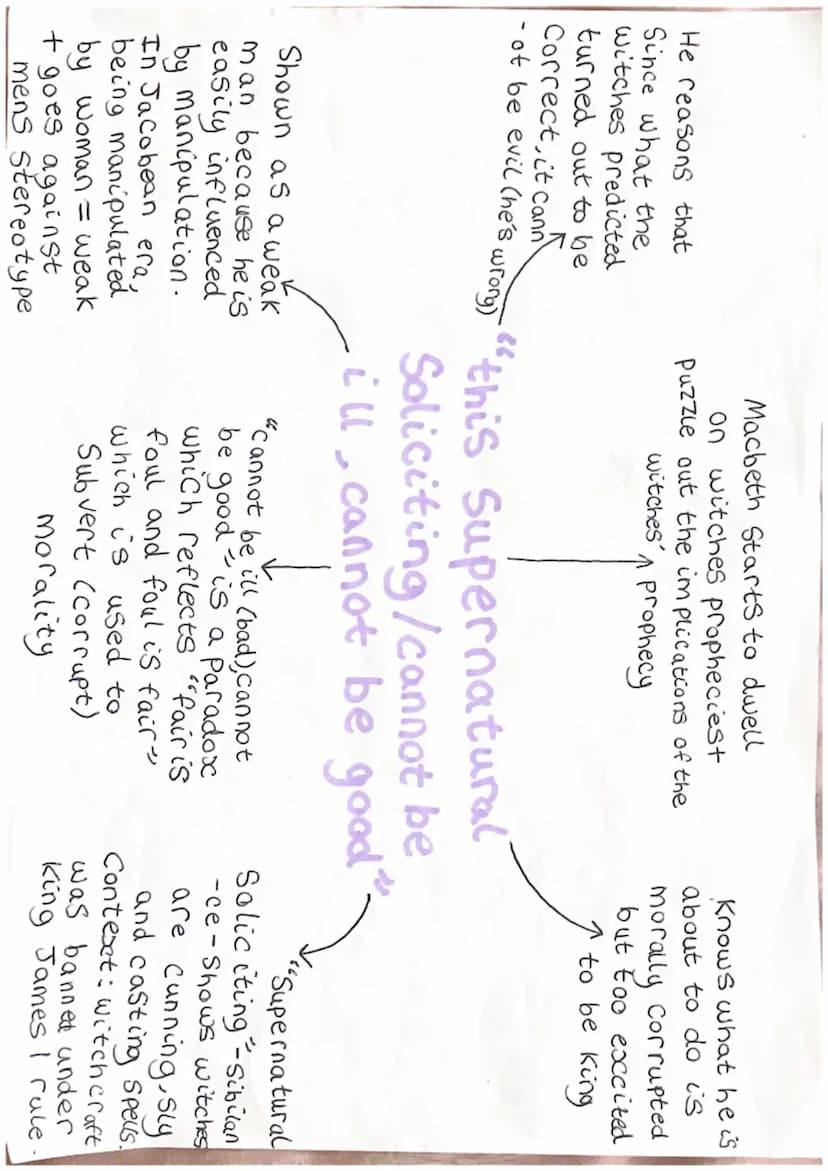 He reasons that
Since what the
witches predicted
turned out to be
Correct, it cann
-ot be evil (he's wrong)
Macbeth starts to dwell
on witches propheciest
puzzle out the implications of the
witches' prophecy
Knows what he is
about to do is
morally corrupted
but too excited
to be King
"this Supernatural
Soliciting/cannot be
ill, cannot be good"
Shown as a weak
man because he is
easily influenced
by manipulation.
In Jacobean era,
being manipulated
by woman = weak
+ goes against
mens stereotype
"cannot be ill (bad), cannot
be good" is a paradox
which reflects "fair is
foul and foul is fair"
which is used to
Subvert (corrupt)
morality
"Supernatural
Soliciting" - Sibilan
-ce - Shows witches
are cunning, sly
and casting spells.
Context: witchcraft
was banned under
King James 1 rule.